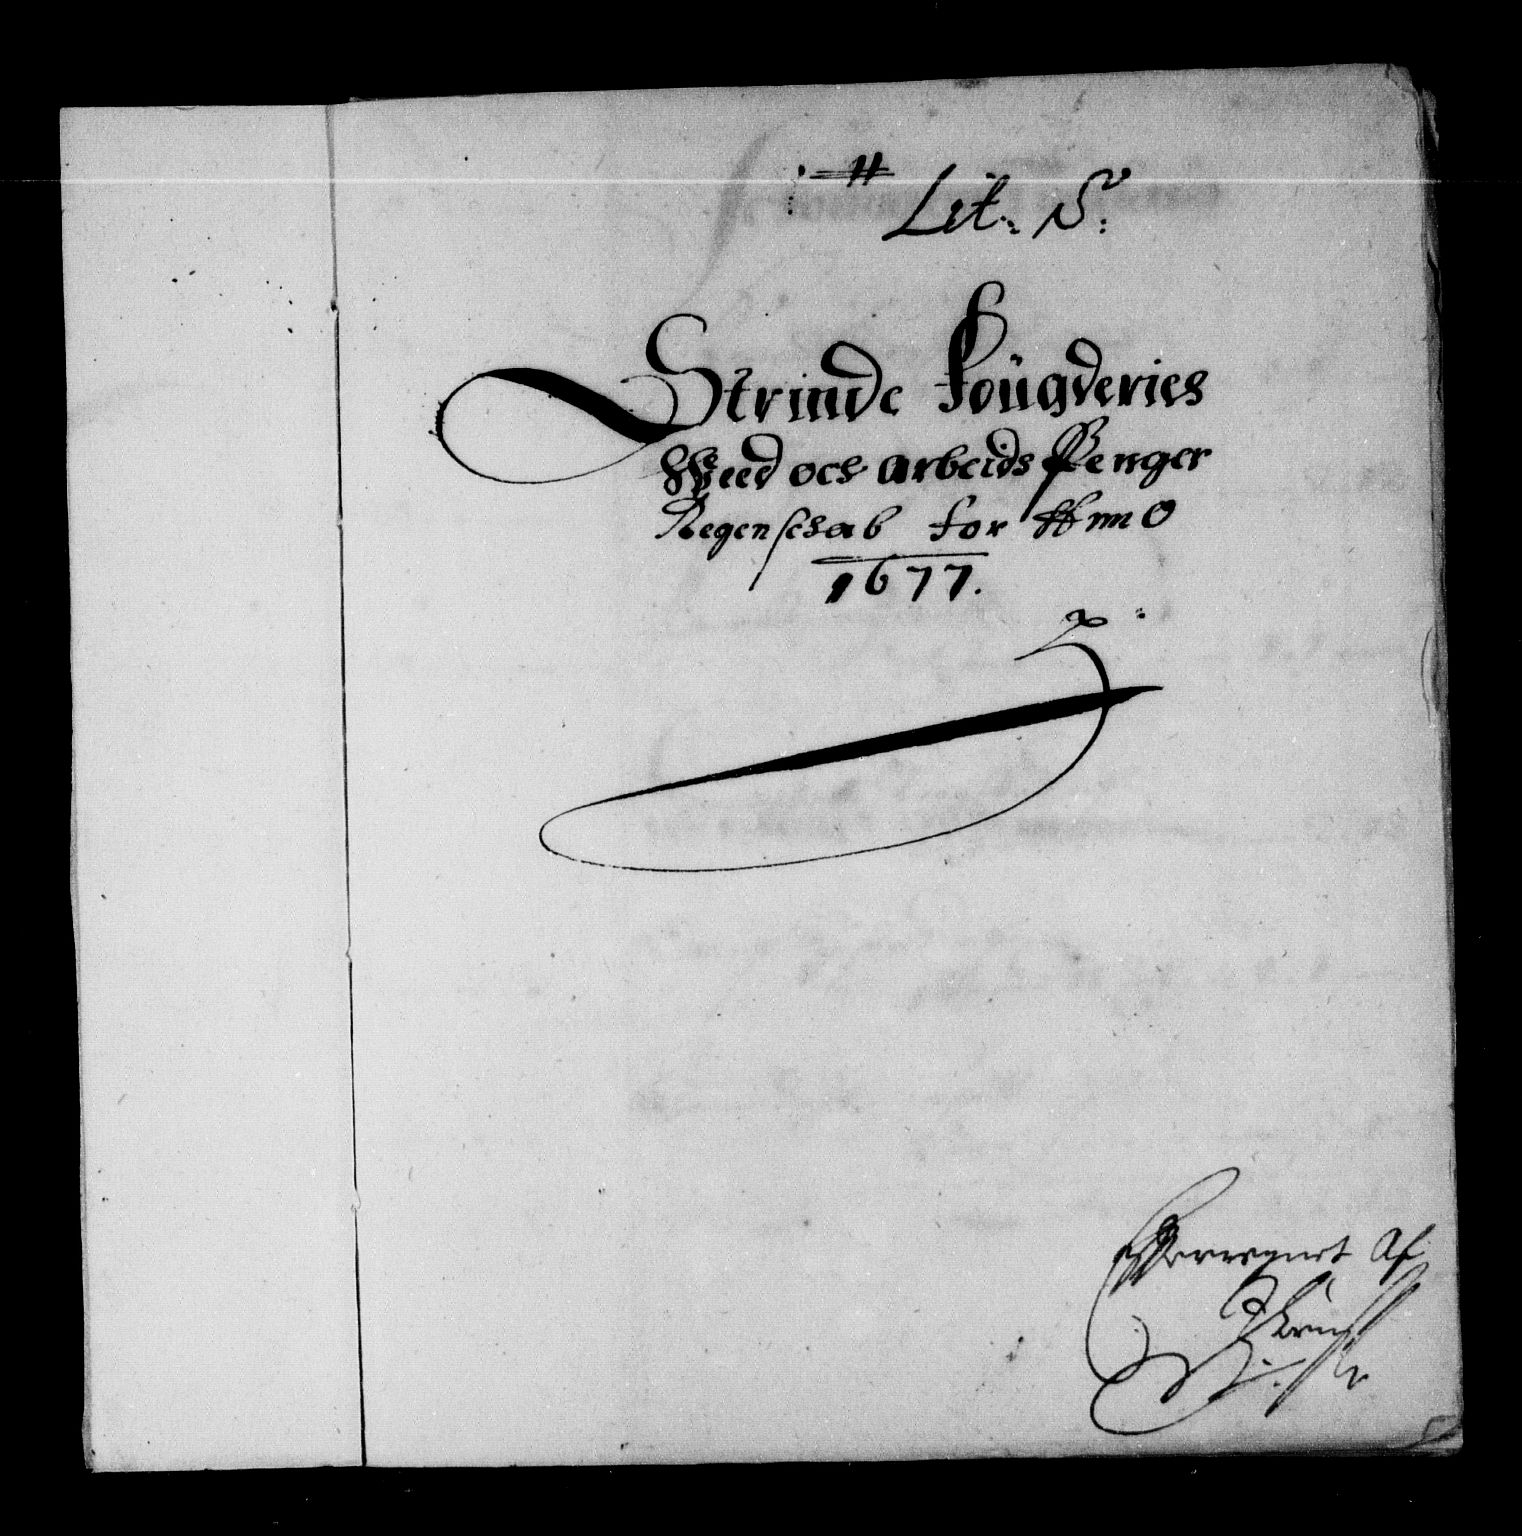 Lit: S:
Strinde fougderies
Weed och arbeids Penger
Regenschab for Anno
1677.
af